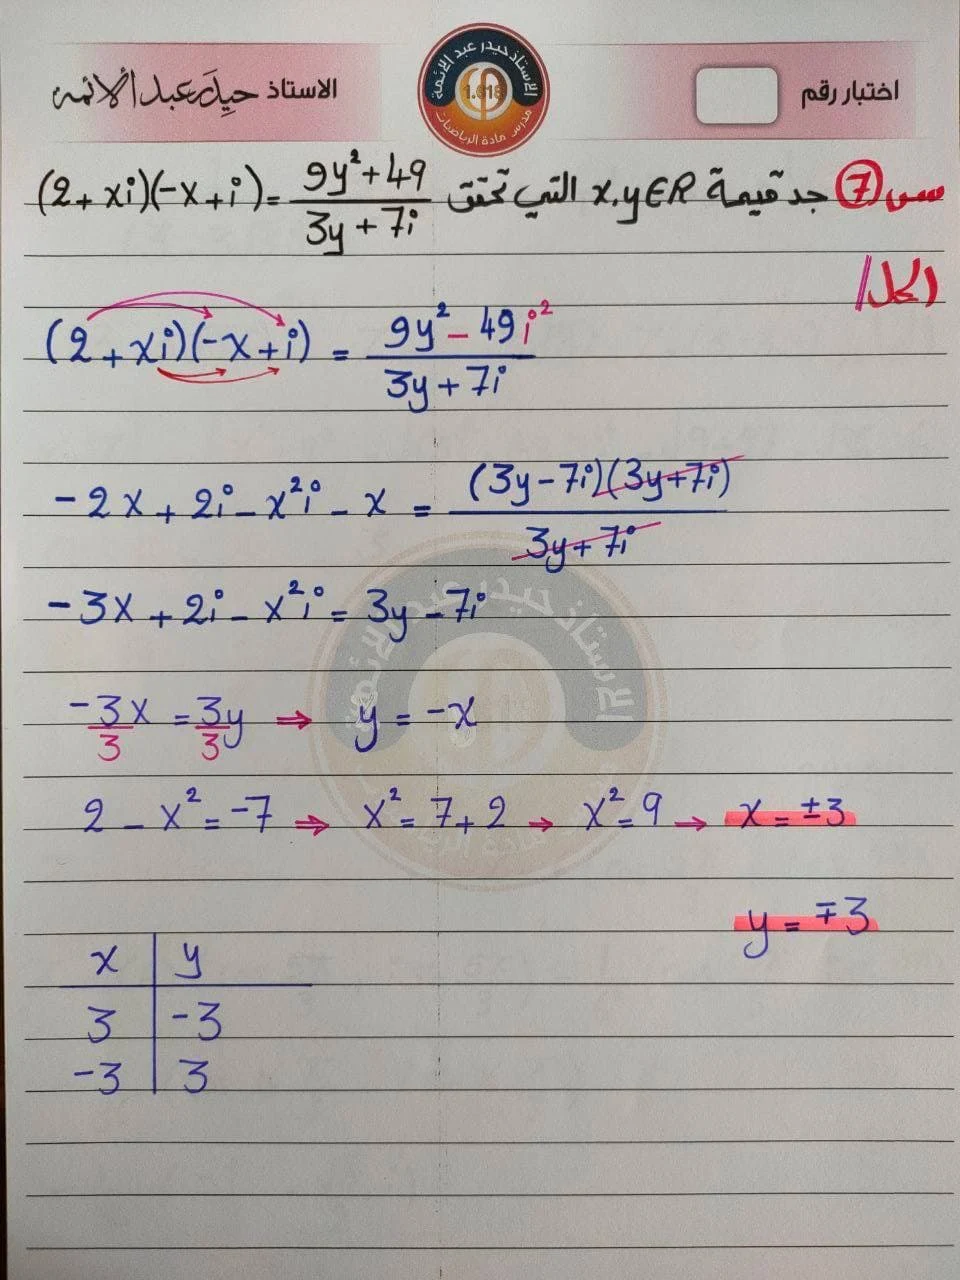 اختبار رقم
الاستاذ حيدر عبد الأئمه
الاستاذ حيدر عبد الائمة
1.618
مدرس مادة الرياضيات
س7) جد قيمة x,y∈R التي تحقق (2+xi)(-x+i) = (9y²+49)/(3y+7i)
الحل/
(2+xi)(-x+i) = (9y²-49i²)/(3y+7i)
-2x+2i-x²i-x = (3y-7i)(3y+7i)/(3y+7i)
-3x+2i-x²i = 3y-7i
-3x/3 = 3y/3 ⇒ y = -x
2-x² = -7 ⇒ x² = 7+2 → x² = 9 → x = ±3
y = ∓3
x | y
3 | -3
-3 | 3